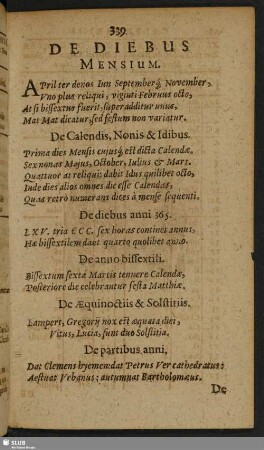 339
DE DIEBUS
MENSIUM.
APril ter denos Iun Septemberq́; November,
Vno plus reliqui, viginti Februus octo,
At si bissextus fuerit, superadditur unus,
Mat Mat dicatur, sed festum non variatur.
De Calendis, Nonis & Idibus.
Prima dies Mensis cujusq́; est dicta Calendæ,
Sex nonas Majus, October, Iulius & Mars.
Quattuor at reliqui: dabit Idus quilibet octo,
Inde dies alios omnes dic esse Calendas,
Quas retrò numerans dices à mense sequenti.
De diebus anni 365.
LXV. tria CCC. sex horas continet annus,
Hæ bissextilem dant quarto quolibet anno.
De anno bissextili.
Bissextum sextæ Martis tenuere Calendæ,
Posteriore die celebrantur festa Matthiæ.
De Æquinoctiis & Solstitiis.
Lampert, Gregorij nox est æquata diei,
Vitus, Lucia, sunt duo Solstitia.
De partibus anni,
Dat Clemens hyemem dat Petrus Ver cathedratus:
Aestuat Vrbanus; autumnat Bartholomæus.
De
SLUB